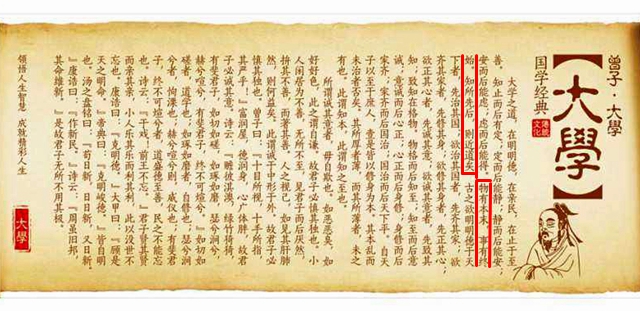 曾子·大學
【大學】
国学经典
大学之道，在明明德，在亲民，在止于至
善。知止而后有定；定而后能静；静而后能安；
安而后能虑；虑而后能得。物有本末，事有终
始。知所先后，则近道矣。古之欲明明德于天
下者，先治其国；欲治其国者，先齐其家；欲
齐其家者，先修其身；欲修其身者，先正其心；
欲正其心者，先诚其意；欲诚其意者，先致其
知；致知在格物。物格而后知至；知至而后意
诚；意诚而后心正；心正而后身修；身修而后
家齐；家齐而后国治；国治而后天下平。自天
子以至于庶人，壹是皆以修身为本。其本乱而
末治者否矣。其所厚者薄，而其所薄者厚，未之
有也。此谓知本，此谓知之至也。
所谓诚其意者，毋自欺也。如恶恶臭，如
好好色，此之谓自谦。故君子必慎其独也。小
人闲居为不善，无所不至，见君子而后厌然，
掩其不善，而著其善。人之视己，如见其肺肝
然，则何益矣。此谓诚于中形于外，故君子必
慎其独也。曾子曰："十目所视，十手所指，
其严乎！"富润屋，德润身，心广体胖，故君
子必诚其意。诗云："瞻彼淇澳，绿竹猗猗。
有斐君子，如切如磋，如琢如磨。瑟兮兮，
赫兮喧兮。有斐君子，终不可喧兮。"如切如
磋者，道学也；如琢如磨者，自修也；瑟兮兮
者，恂也；赫兮喧兮者，威仪也；有斐君
子，终不可喧兮者，道盛德至善，民之不能
忘也。诗云："于戏！前王不忘。"君子贤其贤
而亲其亲，小人乐其乐而利其利，此以没世不
忘也。康诰曰："克明德。"大甲曰："顾
天之明命。"帝典曰："克明峻德。"皆自明
也。汤之盘铭曰："苟日新，日日新，又日新。
"康诰曰："作新民。"诗云："周虽旧邦，
其命维新。"是故君子无所不用其极。
领悟人生智慧 成就精彩人生
大學